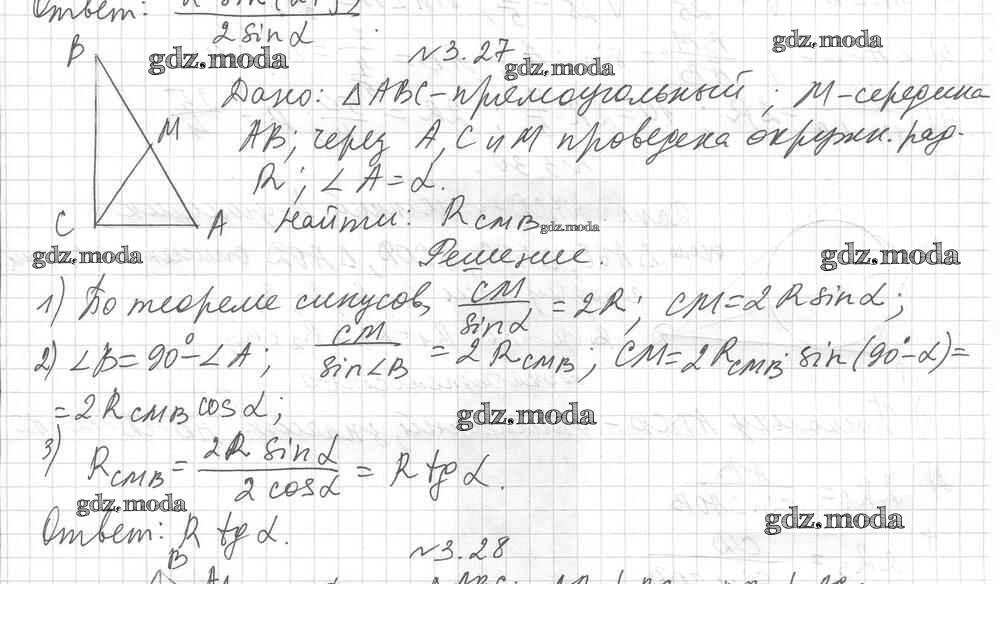 Ответ:
2 sin α
№3.27
gdz.moda
gdz.moda
gdz.moda
B
M
C
A
Дано: △ABC - прямоугольный; M - середина
AB; через A, C и M проведена окружн. рад.
R; ∠A = α.
Найти: R_CMB
gdz.moda
gdz.moda
gdz.moda
Решение.
1) По теореме синусов, CM / sin α = 2R; CM = 2R sin α;
2) ∠B = 90° - ∠A; CM / sin∠B = 2R_CMB; CM = 2R_CMB · sin(90° - α) =
= 2R_CMB cos α;
gdz.moda
3) R_CMB = 2R sin α / 2 cos α = R tg α.
gdz.moda
gdz.moda
Ответ: R tg α.
№3.28
B